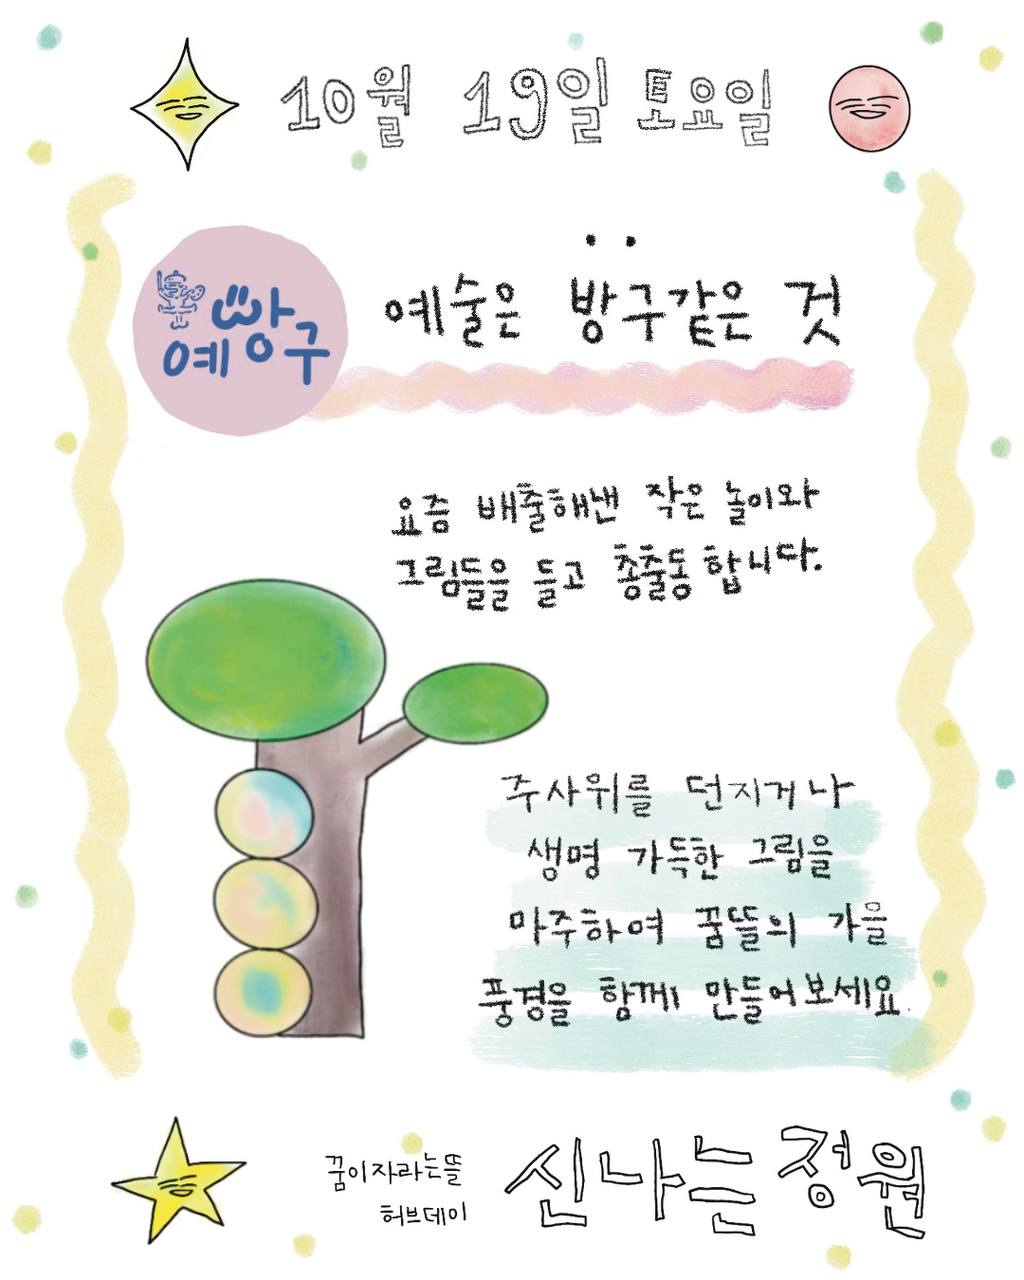 10월 19일 토요일
예빵구
예술은 방구같은 것
요즘 배출해낸 작은 놀이와
그림들을 들고 총출동 합니다.
주사위를 던지거나
생명 가득한 그림을
마주하여 꿈뜰의 가을
풍경을 함께 만들어보세요.
꿈이자라는뜰
허브데이
신나는 정원